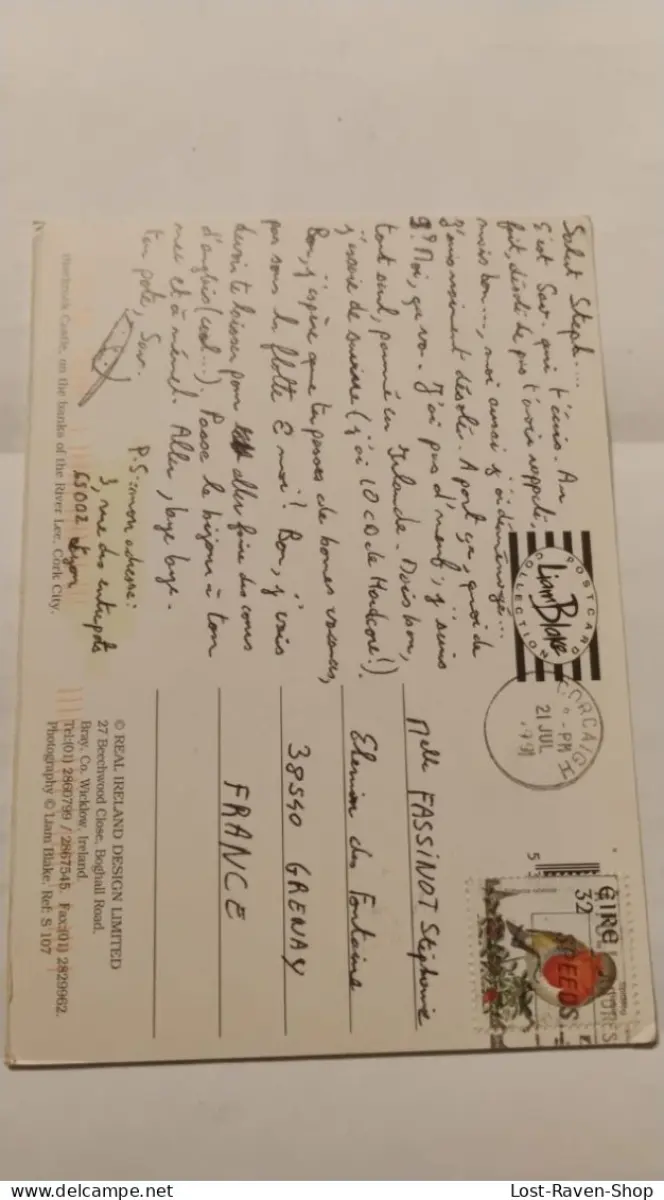 Salut Steph....
C'est Sav. qui t'écris. Au
fait, désolé de pas t'avoir rappelé,
mais bon..., moi aussi j'ai déménagé...
J'suis vraiment désolé. A part ça, quoi de
9? Moi, ça va. J'ai pas d'meuf, j'suis
tout seul, paumé en Irlande. Mais bon,
j'essaie de survivre (j'ai 10 CD de Hardcore!).
Bon, j'espère que tu passes de bonnes vacances,
pas sous la flotte ∈ moi! Bon, j'vais
devoir te laisser pour aller faire des cours
d'anglais (cool...). Passe le bijour à ton
mec et à mémel. Aller, bye bye.
ton pote, Sav.
P.S: mon adresse:
3, rue des entrepôts
69002 Lyon
Blackrock Castle, on the banks of the River Lee, Cork City.
POSTCARD COLLECTION
Liam Blake
CORCAIGH
-PM
21 JUL
EIRE
32
SPEEDS
Melle FASSINOT Stéphanie
Chemin des Fontaine
38540 GRENAY
FRANCE
© REAL IRELAND DESIGN LIMITED
27 Beechwood Close, Boghall Road,
Bray, Co. Wicklow, Ireland.
Tel:(01) 2860799 / 2867545. Fax:(01) 2829962.
Photography © Liam Blake. Ref: S 107
www.delcampe.net
Lost-Raven-Shop